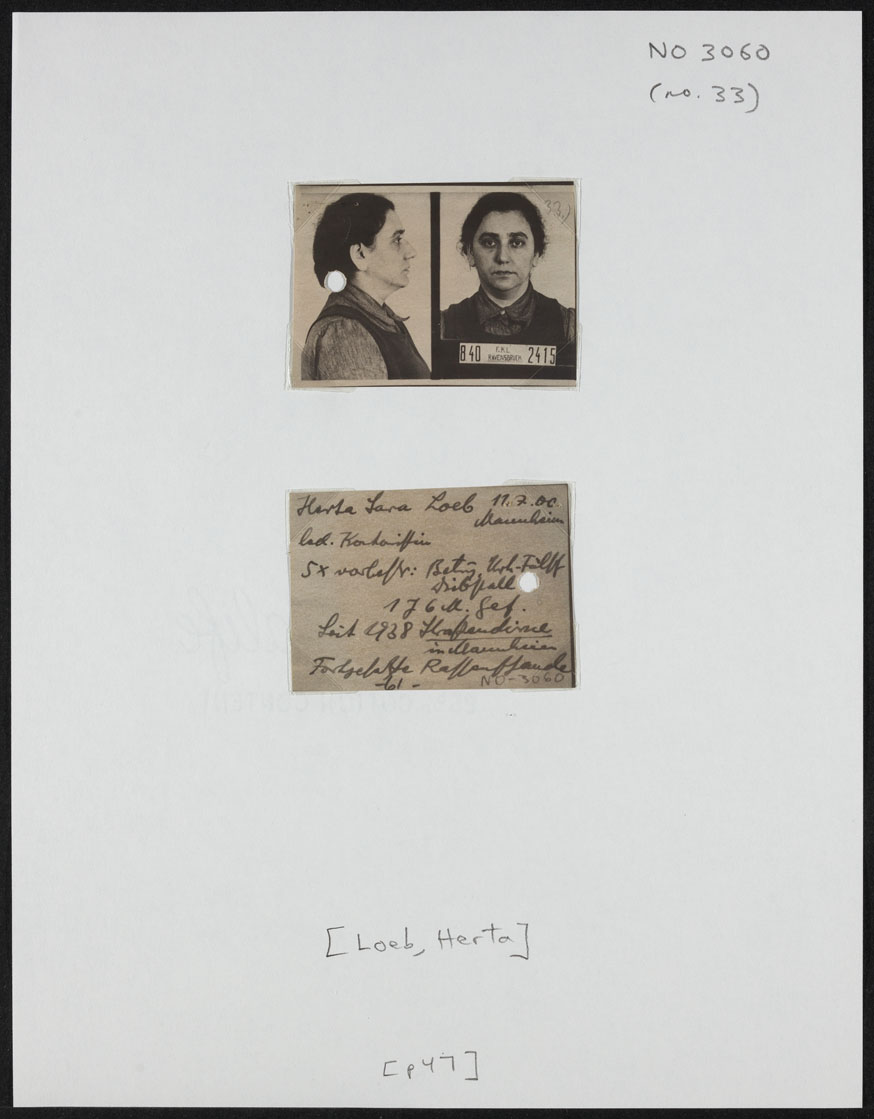 NO 3060
(no. 33)
33.)
840 F.K.L. RAVENSBRÜCK 2415
Herta Sara Loeb 11.7.00
Mannheim
led. Kontoristin
5x vorbestr: Betrug, Urk-Fälsch
Diebstall
1 J 6 M. Gef.
Seit 1938 Straßendirne
in Mannheim
Fortgesetzte Rassenschande
NO-3060
[Loeb, Herta]
[p47]